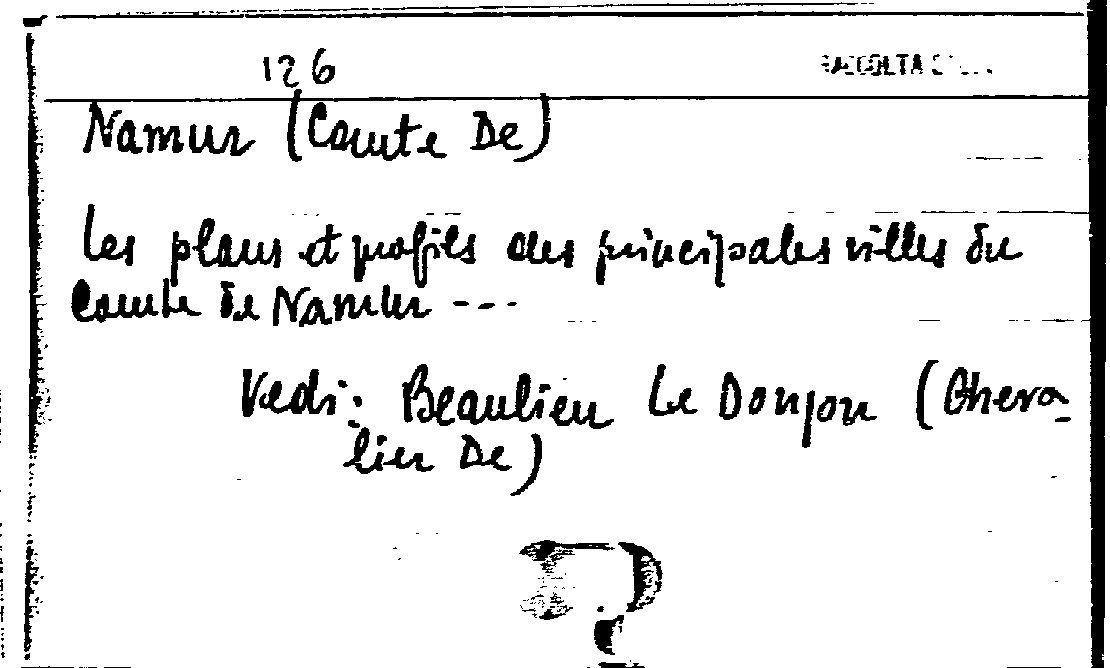 126
RACCOLTA
Namur (Comte De)
Les plans et profils des principales villes du
Comte de Namur ---
Vedi: Beaulieu Le Donjon (Cheva-
lier De)